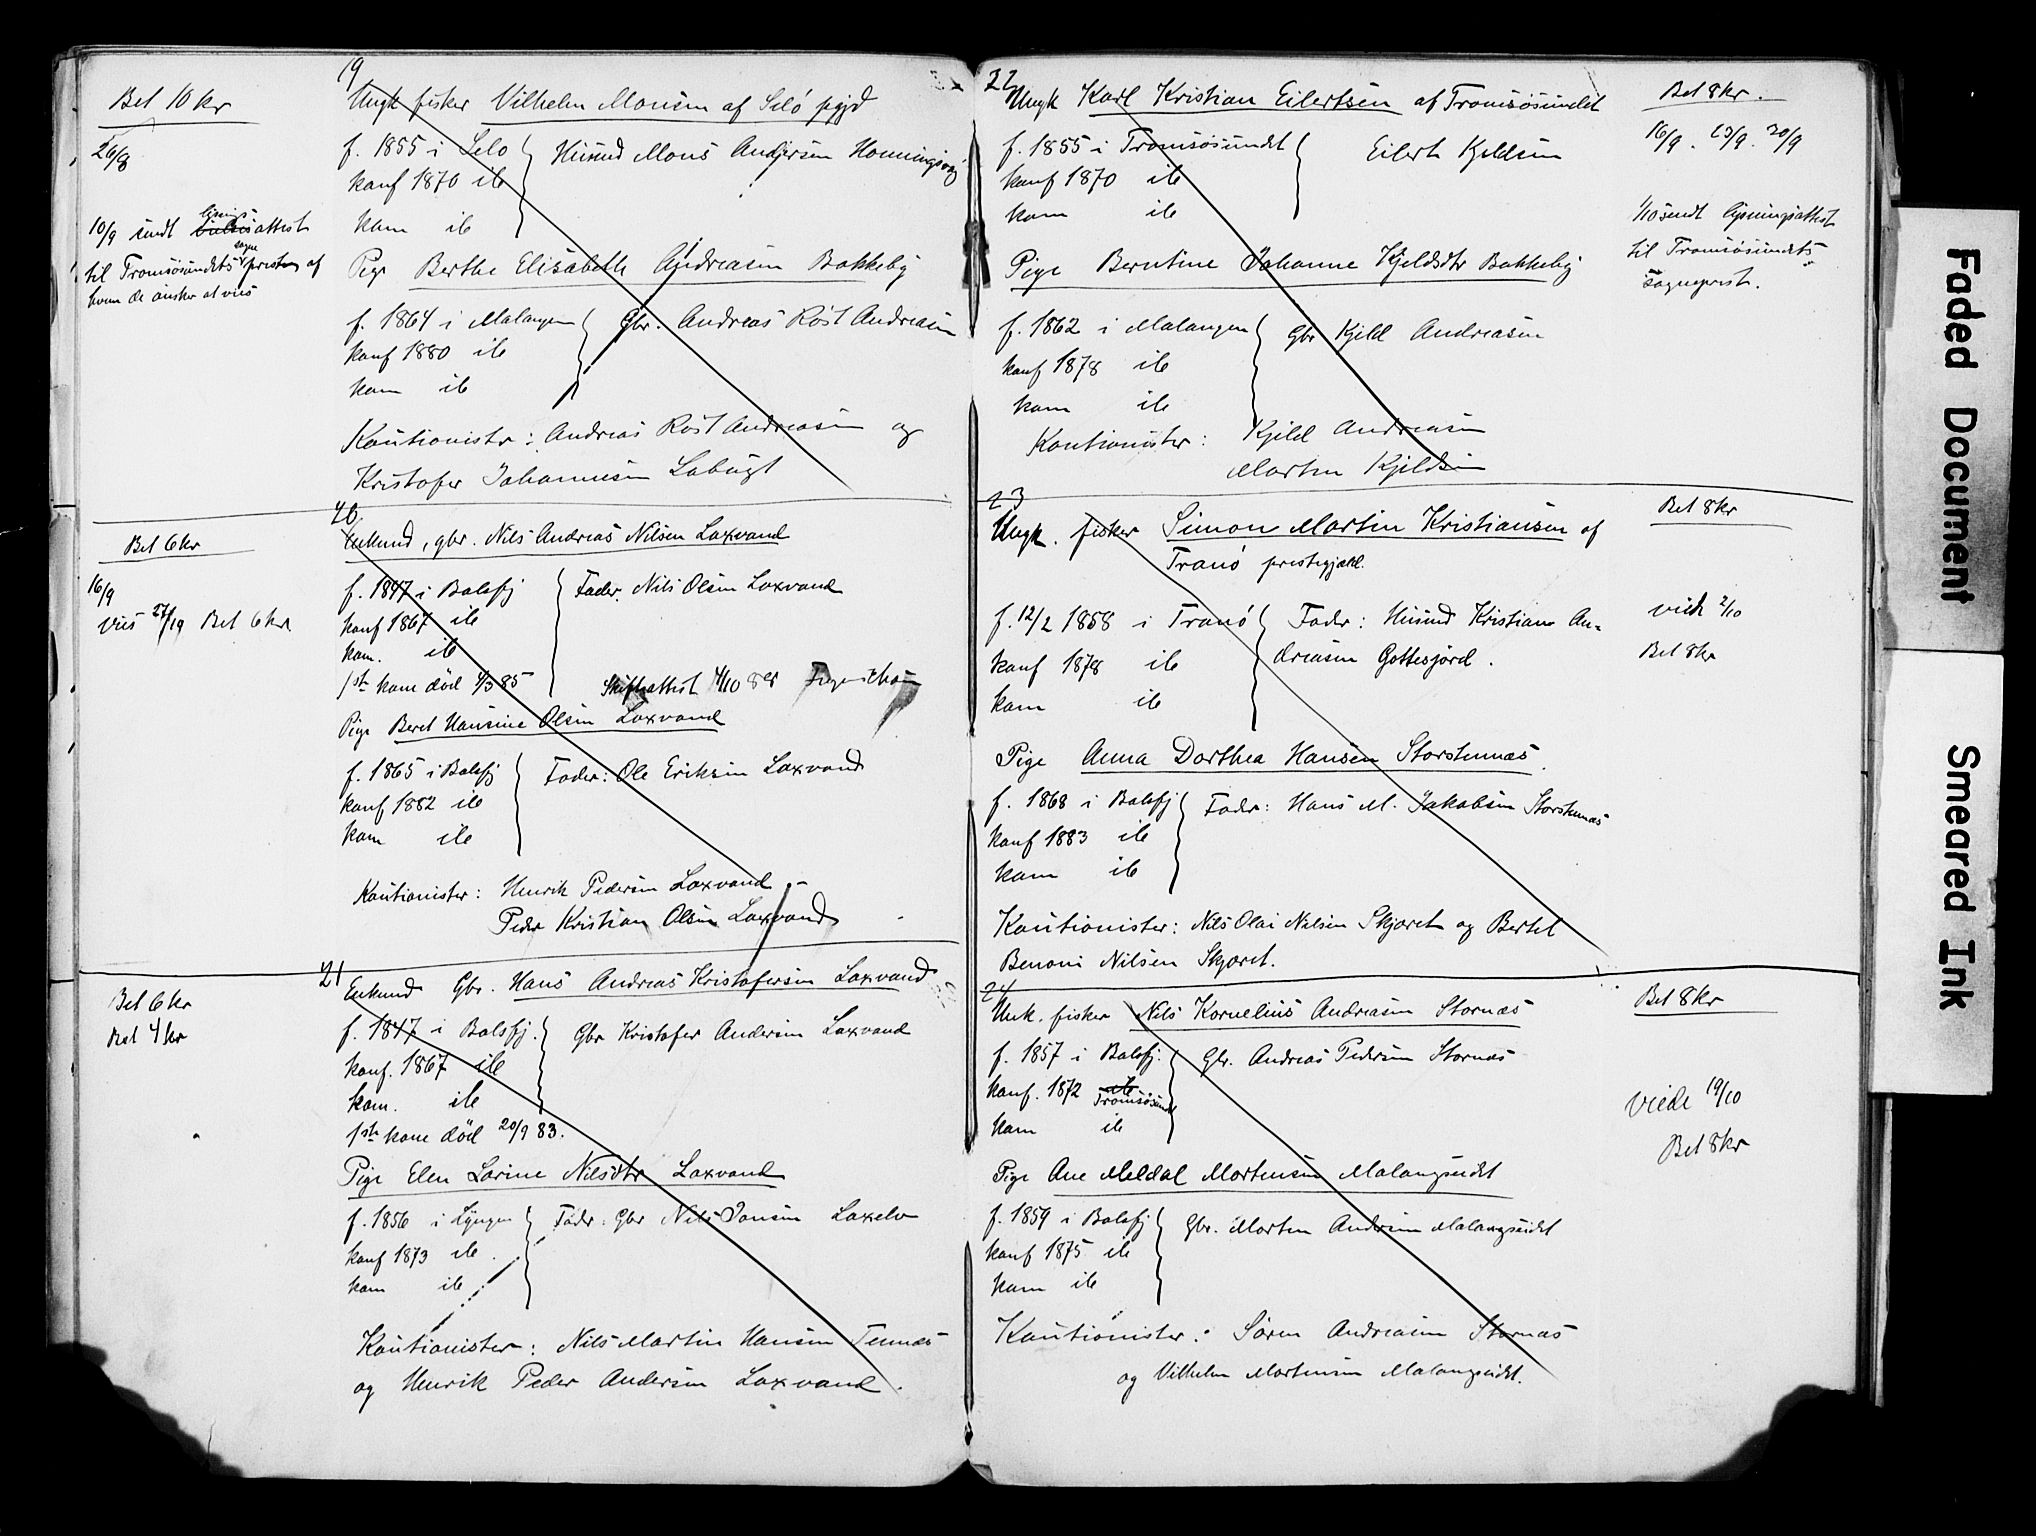 19
Bet 10 kr
Ungk fisker Vilhelm Monsen af Selö pgjd
26/8
f. 1855 i Selö
Husmd Mons Andersen Honningsvåg
konf 1870 ib
kom ib
10/9 sendt lysnings
attest
til Tromsösundets sogne
presten af
hvem de önsker at vies
Pige Berthe Elisabeth Andreasen Bakkeby
f. 1864 i Malangen
Gbr. Andreas Röst Andreasen
konf 1880 ib
kom ib
Kautionister: Andreas Röst Andreasen og
Kristofer Johannesen Lobugt
20
Bet 6 kr
Enkemd, gbr. Nils Andreas Nilsen Laxvand
16/9
vies 27/9 Bet 6 kr
f. 1847 i Balsfj
Fader. Nils Olsen Laxvand
konf 1867 ib
kom. ib
1ste kone död 4/3 85
Skifteattest 4/10 85
Pige Beret Hansine Olsen Laxvand
f. 1865 i Balsfj
Fader: Ole Eriksen Laxvand
konf 1882 ib
kom ib
Kautionister: Henrik Pedersen Laxvand
Peder Kristian Olsen Laxvand
21
Bet 6 kr
Bet 4 kr
Enkemd Gbr. Hans Andreas Kristofersen Laxvand
f. 1847 i Balsfj.
Gbr Kristofer Andersen Laxvand
konf. 1867 ib
kom. ib
1ste kone död 20/9 83.
Pige Elen Larine Nilsdtr Laxvand
f. 1856 i Lyngen
Fader: Gbr Nils Jonsen Laxelv
konf 1873 ib
kom ib
Kautionister: Nils Martin Hansen Tennæs
og Henrik Peder Andersen Laxvand.
22
Ungk Karl Kristian Eilertsen af Tromsösundet
Bet 8 kr.
f. 1855 i Tromsösundet
Eilert Kjeldsen
16/9. 13/9. 20/9
konf 1870 ib
kom ib
1/10 sendt lysningsattest
til Tromsösundets
Sogneprest.
Pige Berntine Johanne Kjeldsdtr Bakkeby
f. 1862 i Malangen
Gbr Kjeld Andreasen
konf 1878 ib
kom ib
Kautionister: Kjeld Andreasen
Morten Kjeldsen
23
Bet 8 kr
Ungk. fisker Simon Martin Kristiansen af
Tranö prestegjæld.
f. 12/2 1858 i Tranö
Fader: Husmd Kristian An-
dreasen Gottesjord.
viede 2/10
Bet 8 kr
konf 1878 ib
kom ib
Pige Anna Dorthea Hansen Storstennæs.
f. 1868 i Balsfj
Fader: Hans M. Jakobsen Storstennæs
konf 1883 ib
kom ib
Kautionister: Nils Olai Nilsen Skjæret og Bertel
Benoni Nilsen Skjæret.
24
Bet 8 kr
Unk. fisker Nils Kornelius Andreasen Stornæs
f. 1857 i Balsfj.
Gbr. Andreas Pedersen Stornæs
konf. 1872 ib
Tromsösund
kom ib
Viede 19/10
Bet 8 kr
Pige Ane Meldal Mortensen Malangseidet
f. 1859 i Balsfj
Gbr. Morten Andersen Malangseidet
konf 1875 ib
kom ib
Kautionister: Sören Andreasen Stornæs
og Vilhelm Mortensen Malangseidet.
Faded Document
Smeared Ink